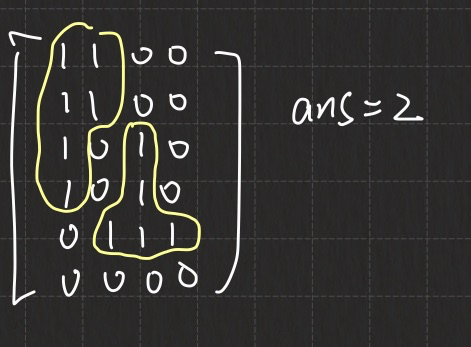 1 1 0 0
1 1 0 0
1 0 1 0
1 0 1 0
0 1 1 1
0 0 0 0
ans=2